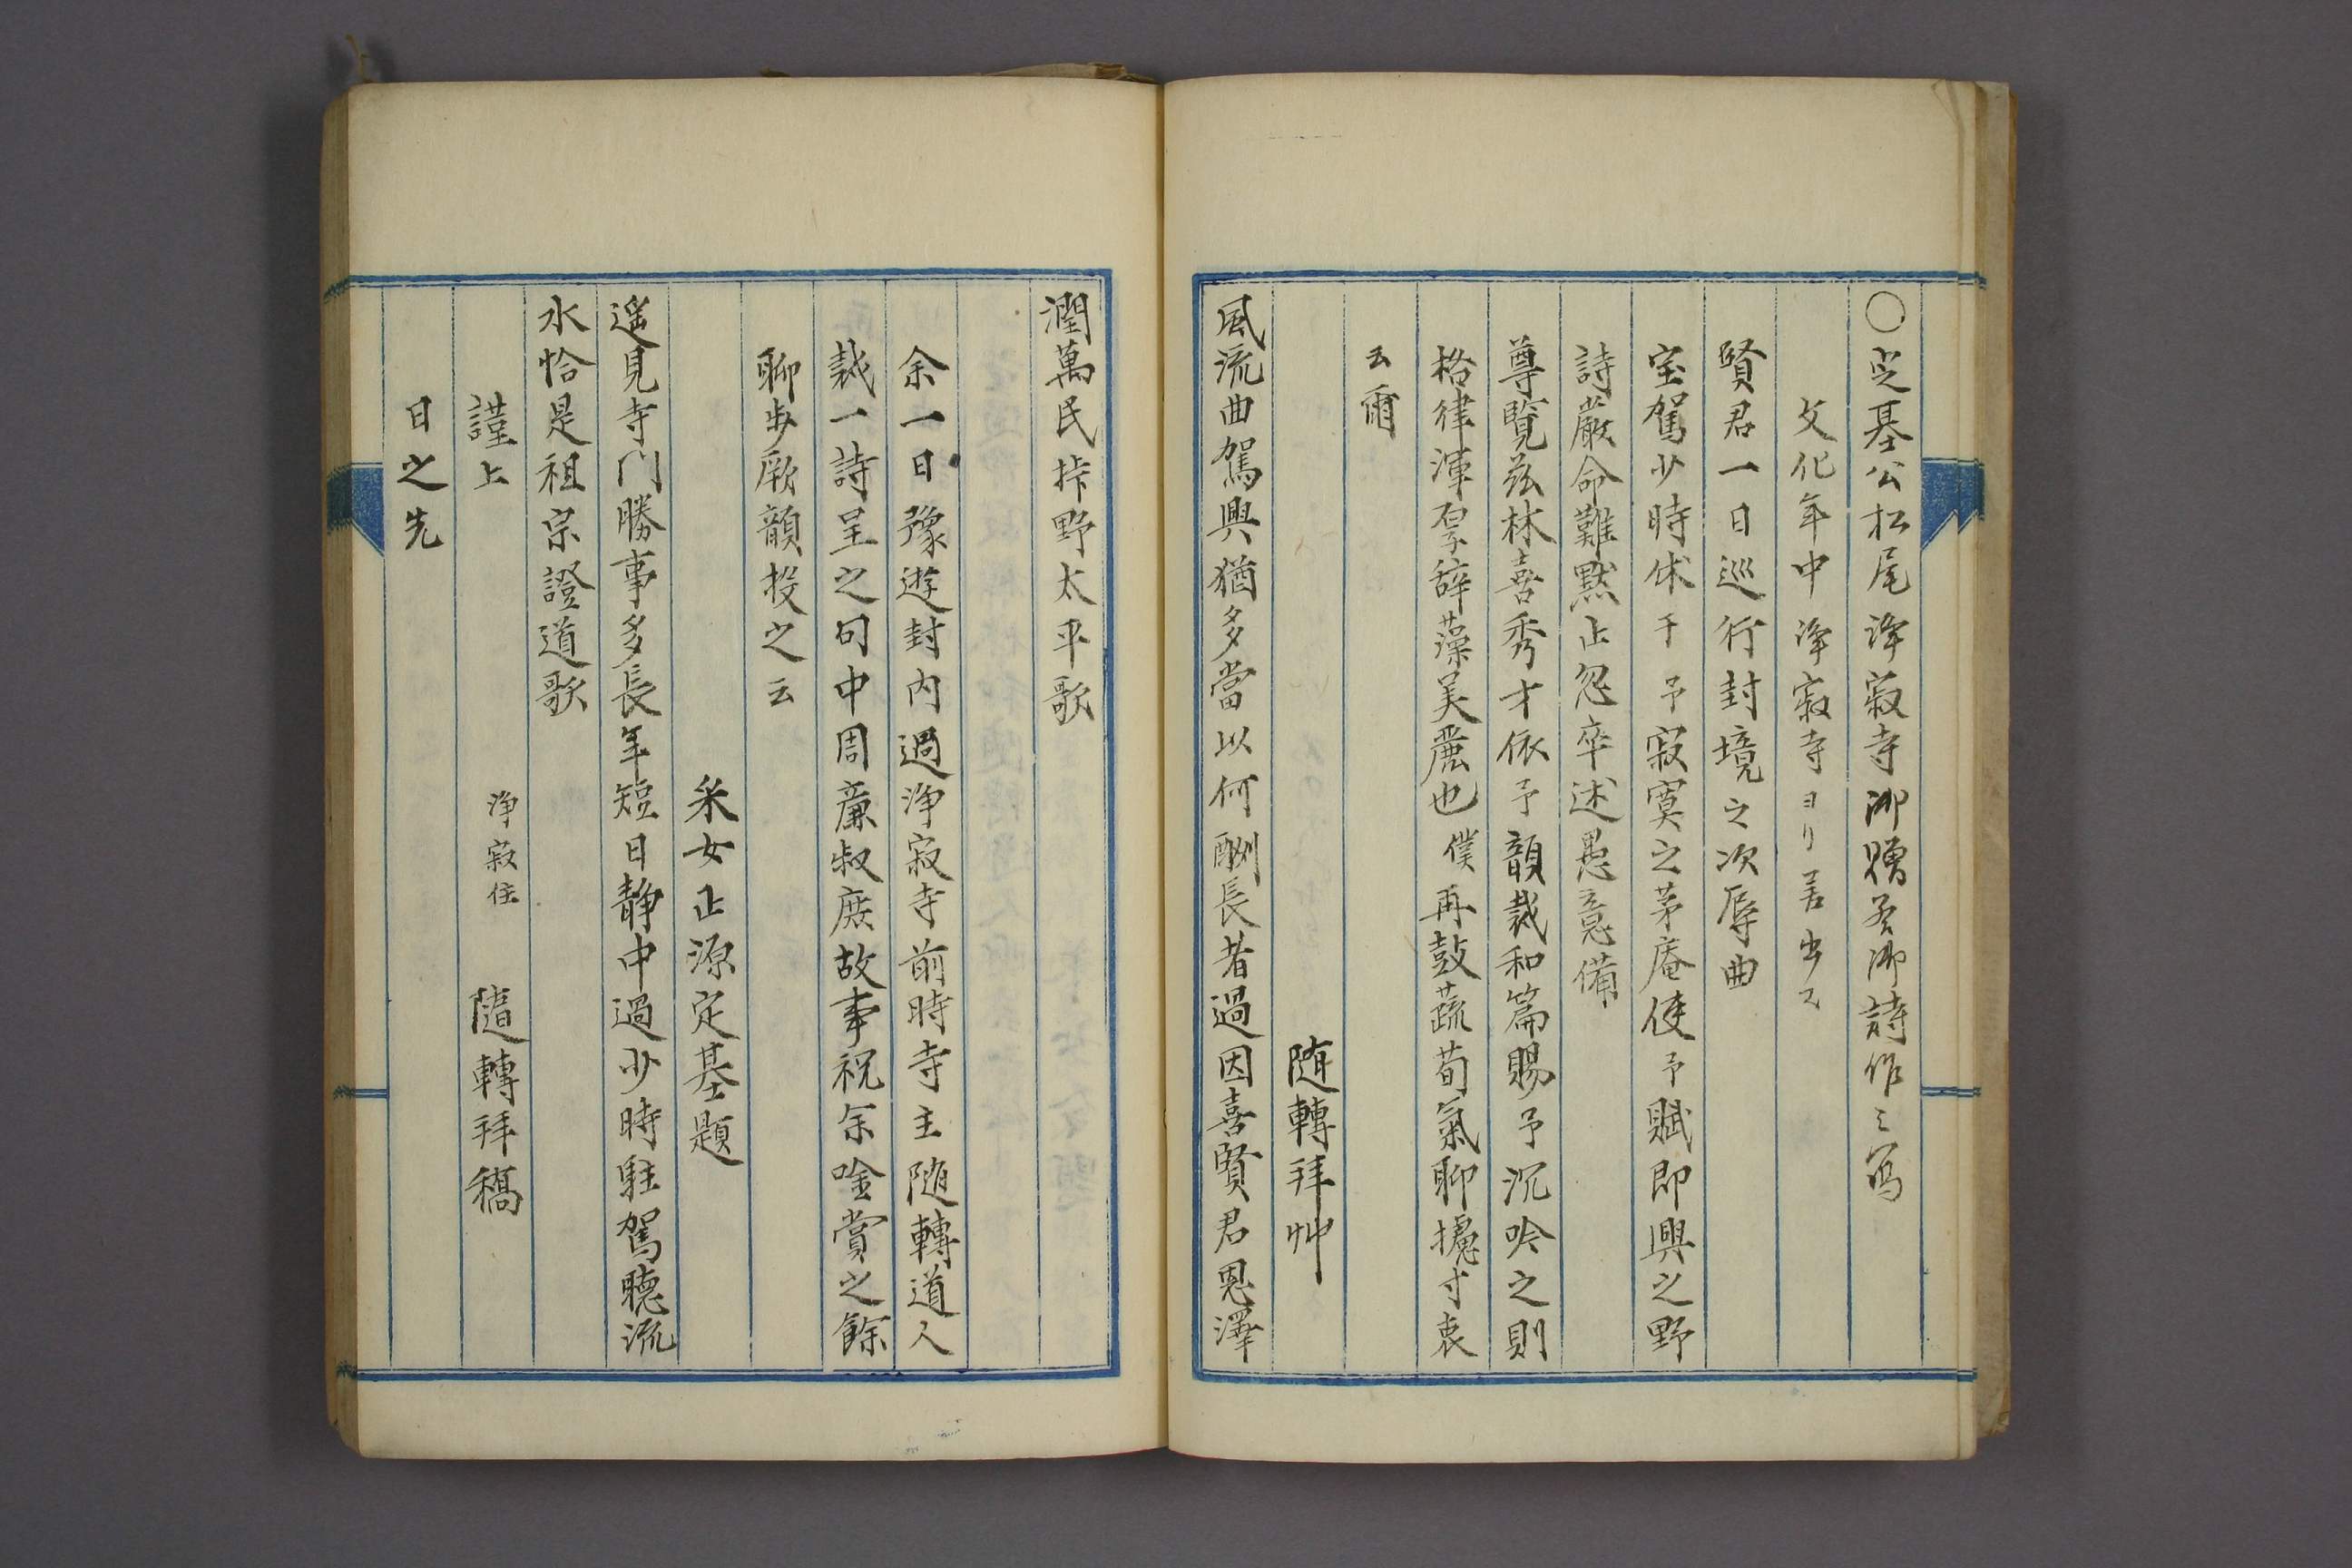 ○定基公松尾浄寂寺御贈答御詩作之写
文化年中浄寂寺ヨリ差出ス
賢君一日巡行封境之次辱曲
宝駕少時休于予寂寞之茅庵使予賦即興之野
詩厳命難黙止忽卒述愚意備
尊覧茲林喜秀才依予韻裁和篇賜予沉吟之則
格律渾厚辞藻美麗也僕再鼓蔬荀氣聊攄寸衷
云爾
随轉拜艸
風流曲駕興猶多當以何酬長者過因喜賢君恩澤
潤萬民抃野太平歌
余一日豫遊封内過浄寂寺前時寺主随轉道人
裁一詩呈之句中周廉叔度故事祝余唫賞之餘
聊歩厥韻投之云
采女正源定基題
遥見寺門勝事多長年短日静中過少時駐駕聴流
水恰是祖宗證道歌
謹上 浄寂住 隨轉拜稿
日之先